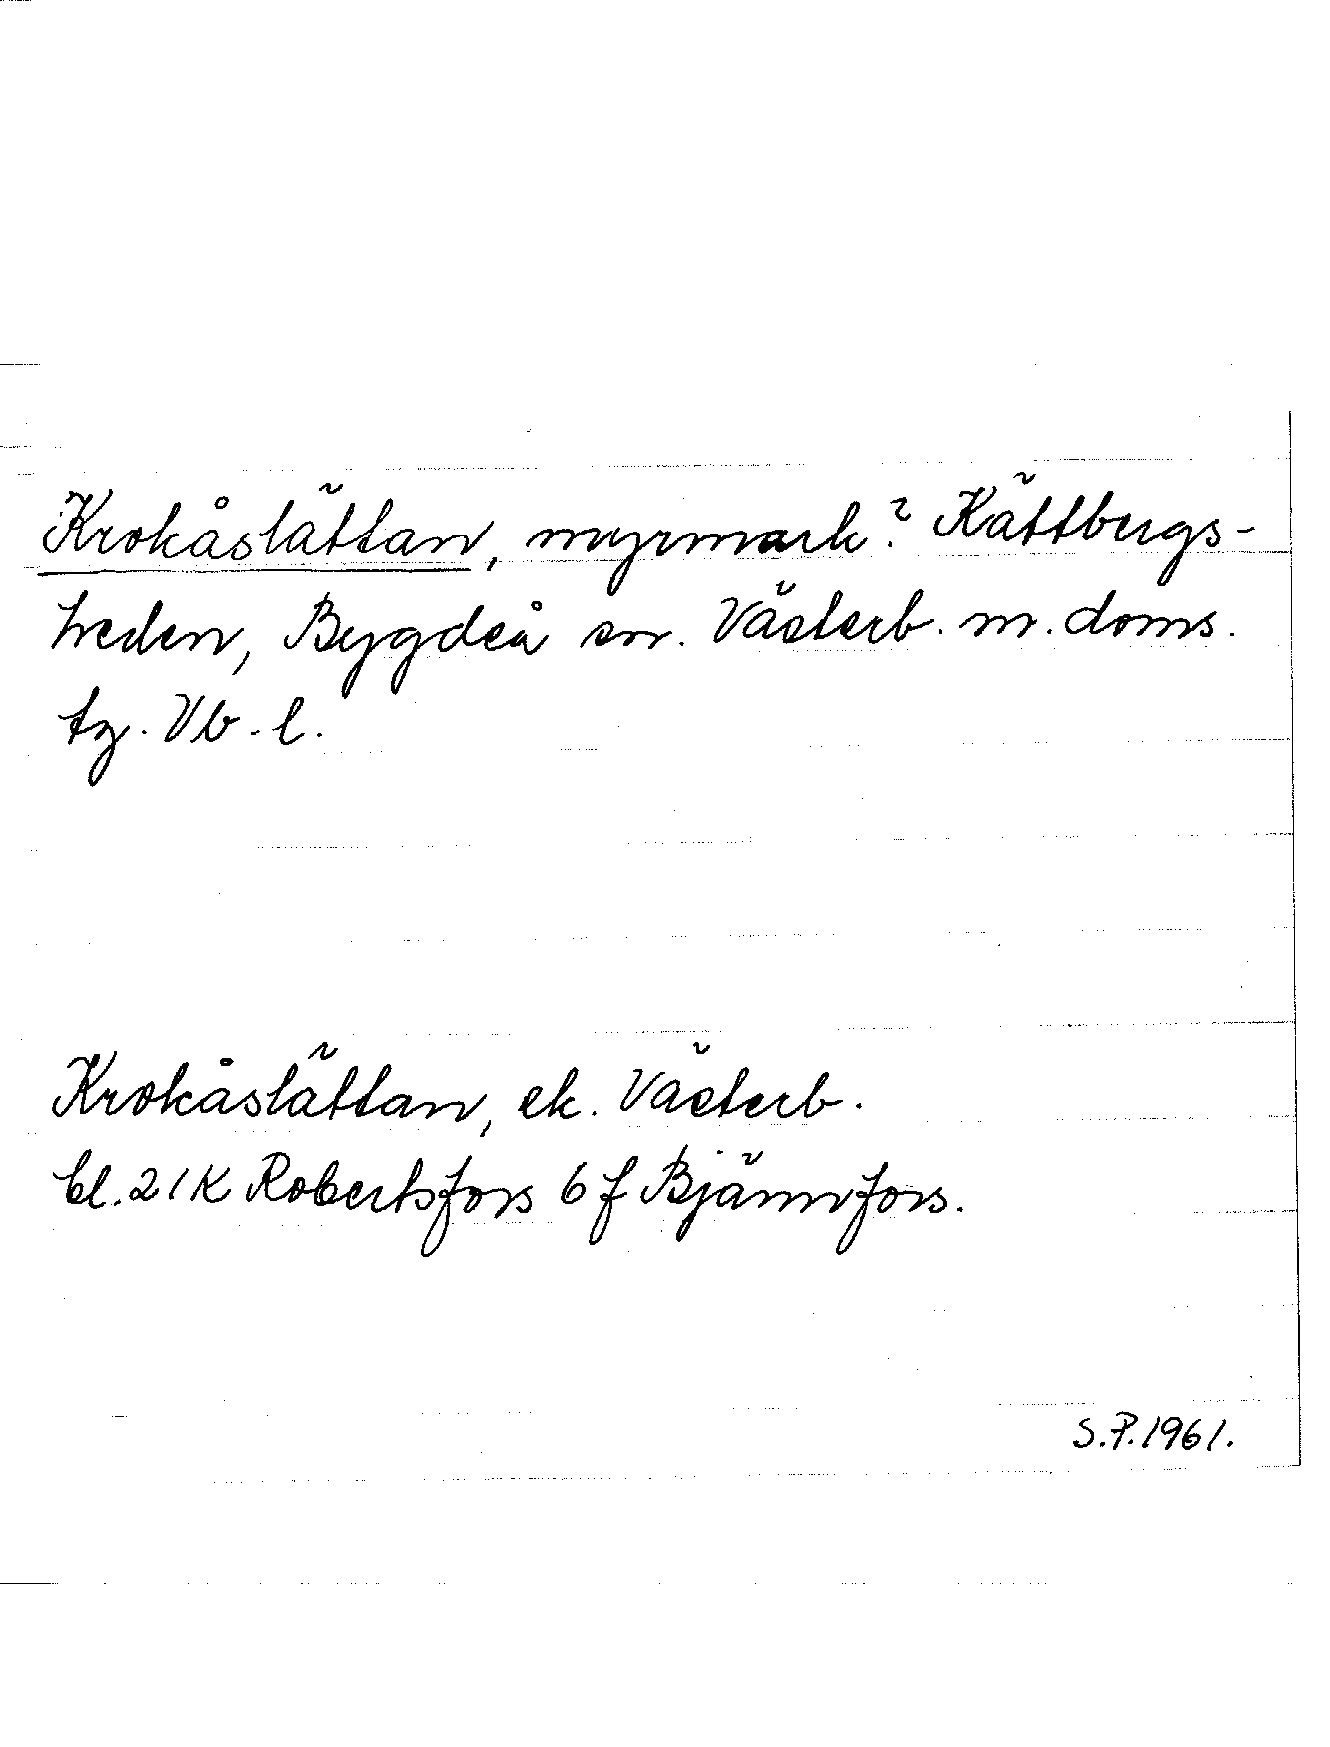 Krokåslättan, myrmark? Kättbergs-
heden, Bygdeå sn. Västerb. m. doms.
tg. Vb. l.
Krokåslättan, ek. Västerb.
bl. 21K Robertsfors 6 f Bjännfors.
S.P. 1961.